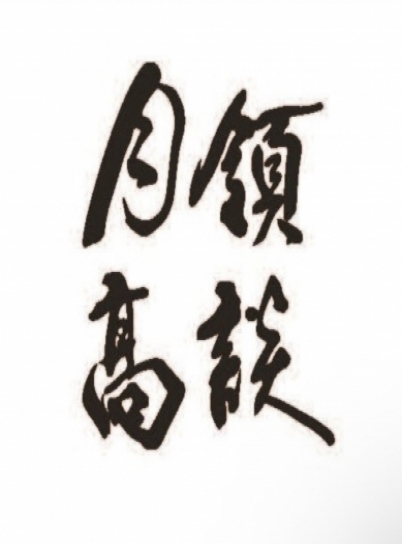 月領
高談